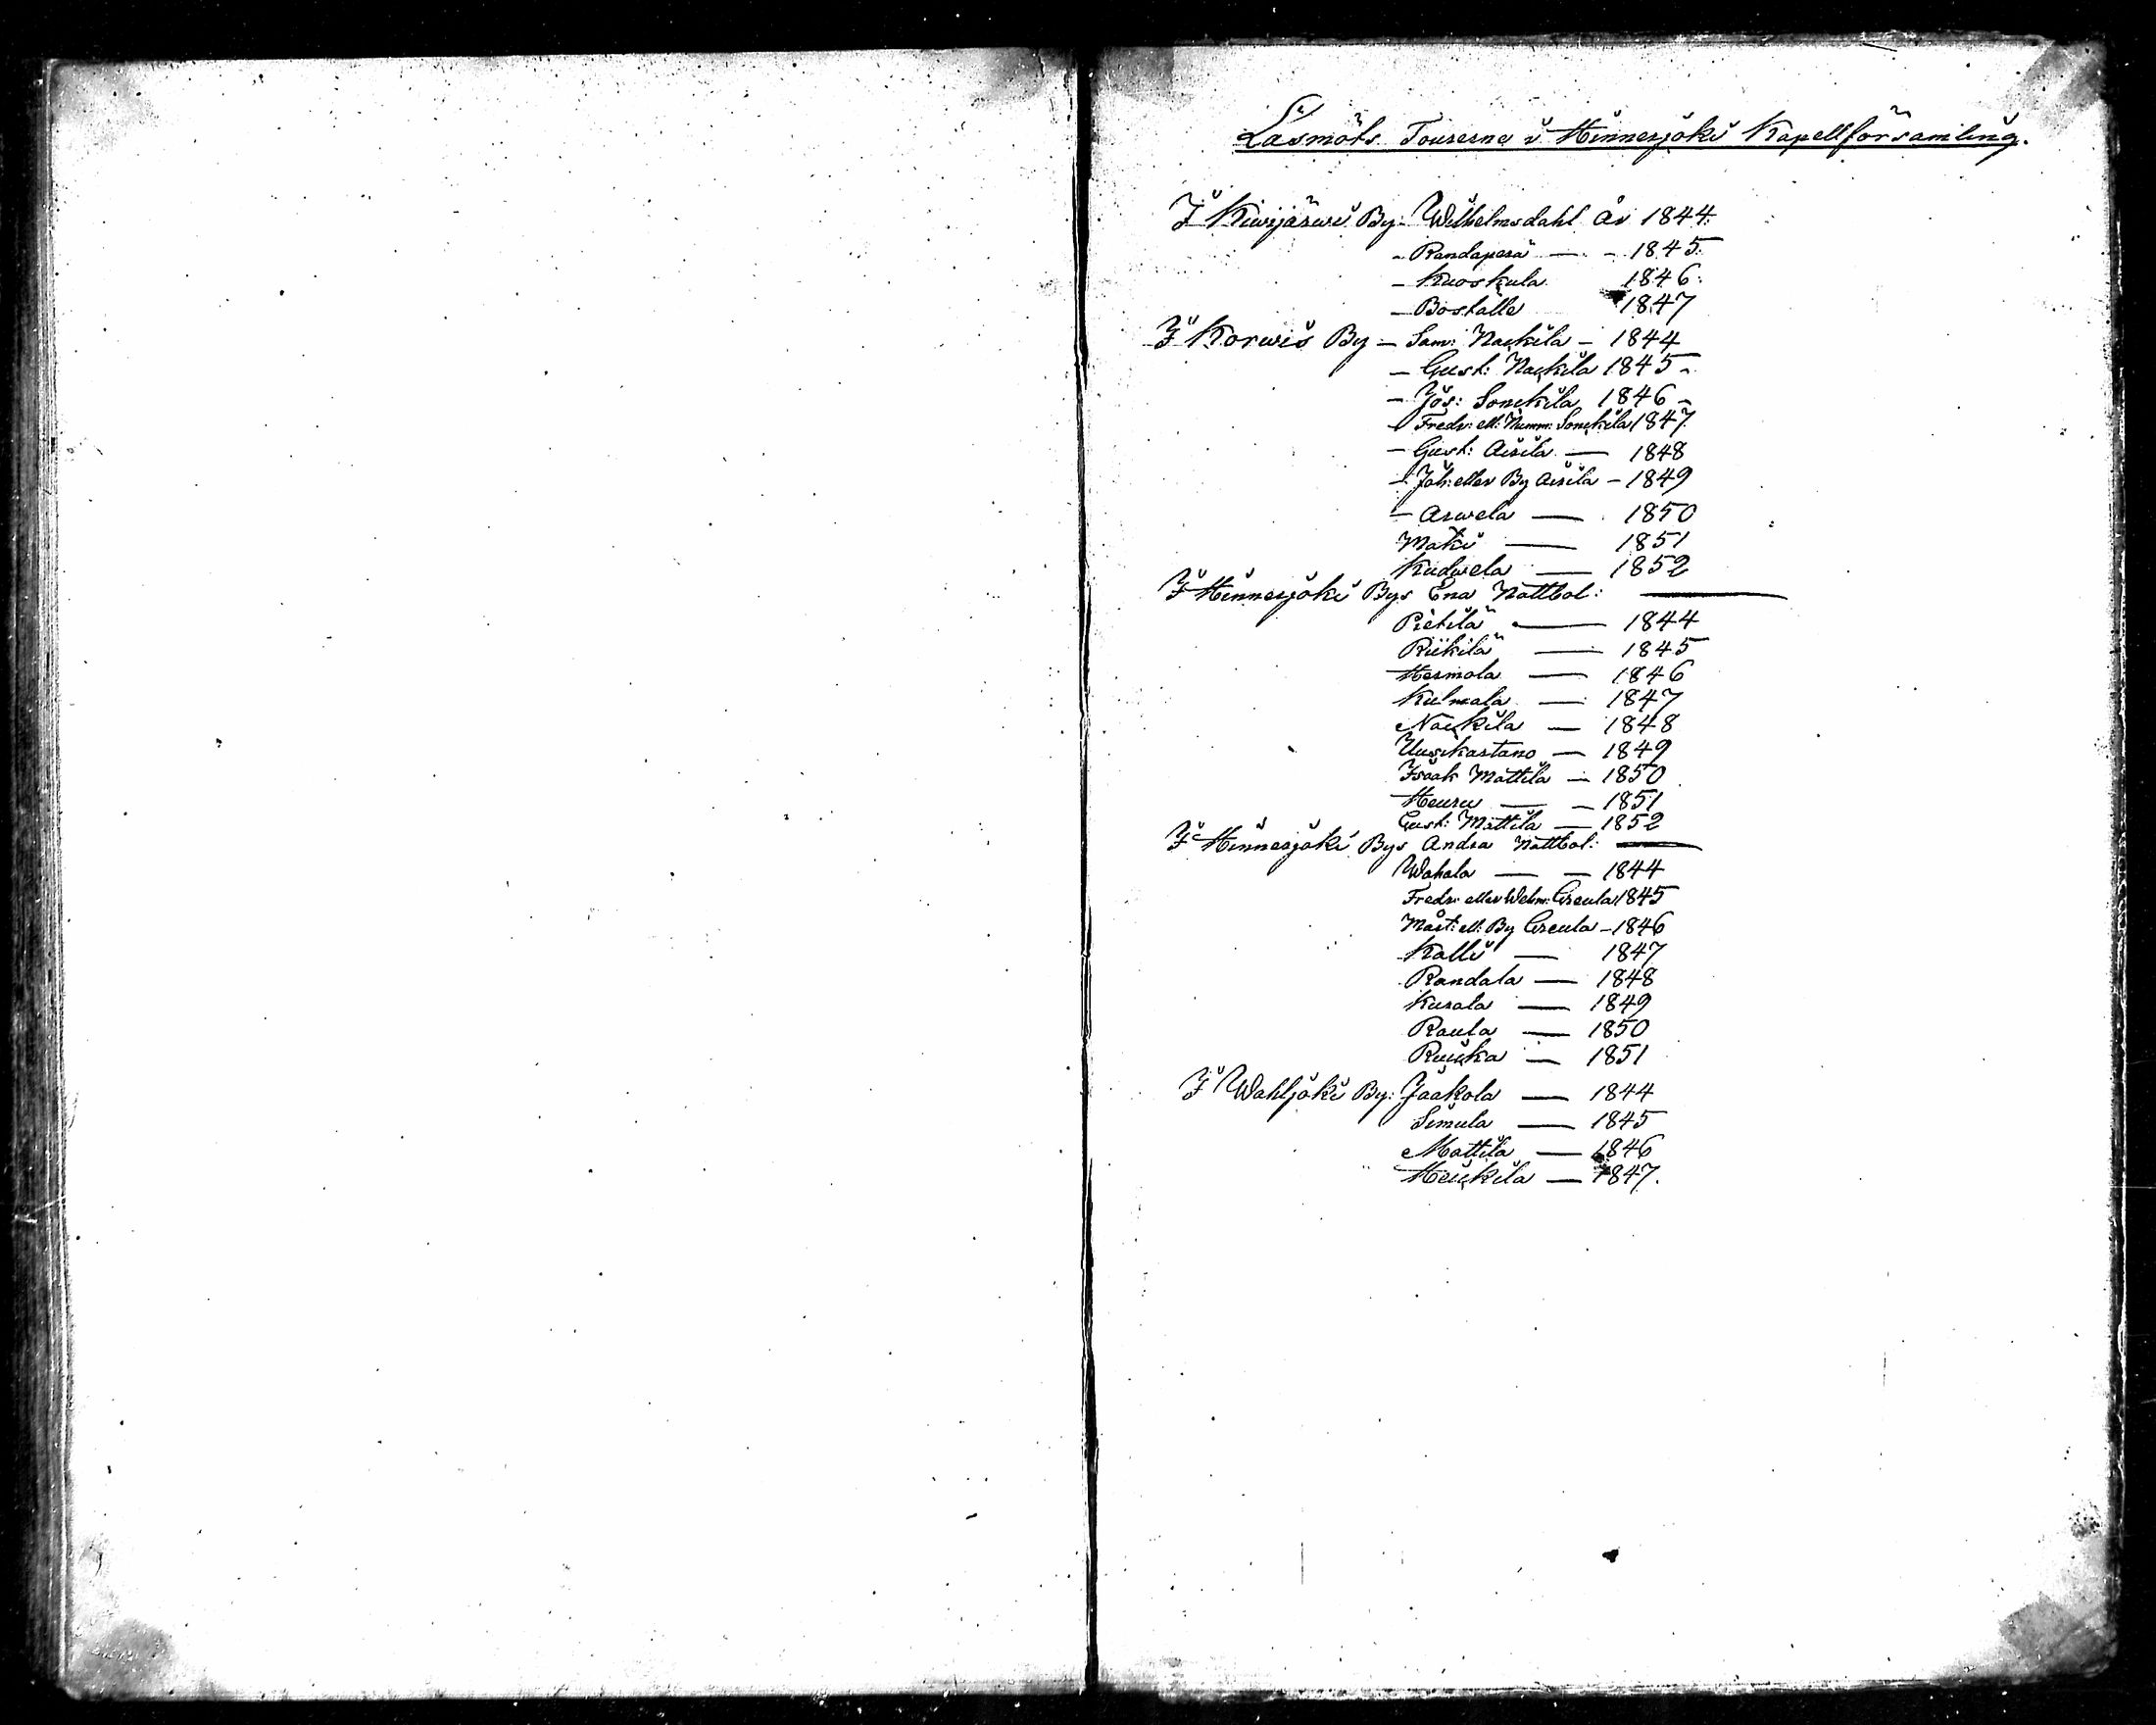 Läsmöts Tourerne i Hinnerjoki Kapellförsamling.
I Kiwijärwi By: Wilhelmsdahl år 1844.
- Randaperä — - 1845.
- Kuoskula 1846.
- Boställe 1847
I Korwis By — Sam: Nackila - 1844
- Gust: Nackila 1845 -
- Jos: Sonckila 1846 -
- Fredr: ell: Numm: Sonckila 1847.
- Gust: Airila — 1848
- Joh: eller By Airila - 1849
- Arwela — 1850
Mäki — 1851
Kudwela — 1852
I Hinnerjoki Bys Ena Nattbol: —
Pietilä — 1844
Riikilä — 1845
Hermola — 1846
Kulmala — 1847
Nackila — 1848
Uusikartano — 1849
Isaak Mattila — 1850
Heuru — - 1851
Gust: Mattila — 1852
I Hinnerjoki Bys Andra Nattbol: —
Wahala — — 1844
Fredr: eller Welm: Creula 1845
Mårt: ell: By Creula - 1846
Kalli — 1847
Randala — 1848
Kurala — 1849
Raula — 1850
Ruuska — 1851
I Wahljoki By: Jaakola — 1844
Simula — 1845
Mattila — 1846
Heickila — 1847.